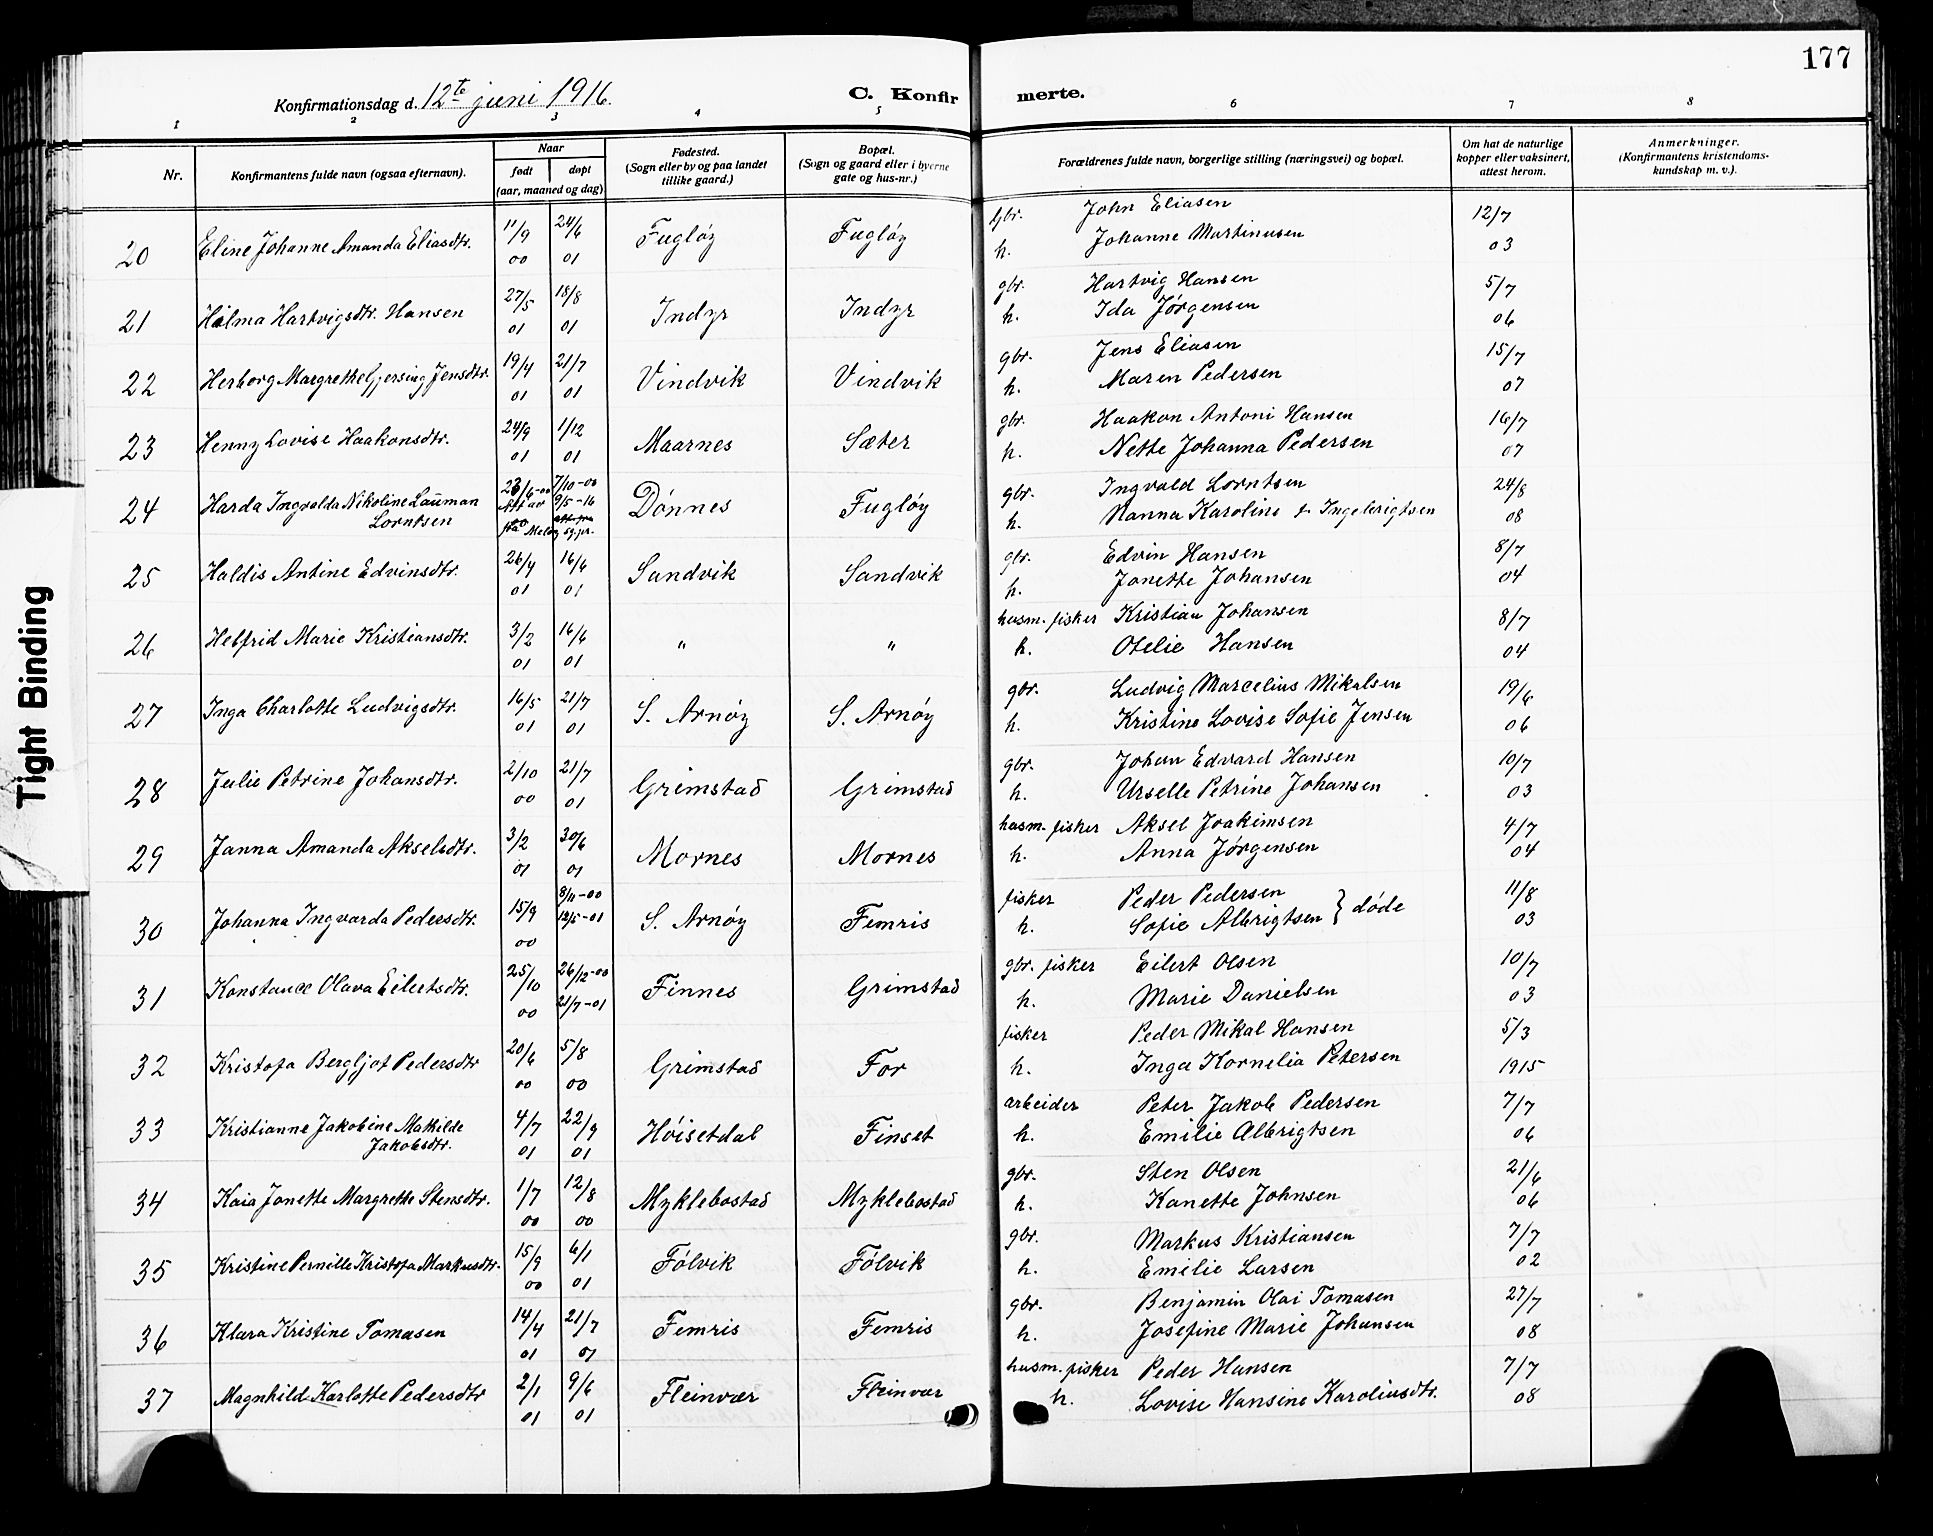 177
Konfirmationsdag d. 12te juni 1916.
C. Konfir merte.
1 2 3 4 5 6 7 8
Nr.
Konfirmantens fulde navn (ogsaa efternavn).
Naar
født
døpt
(aar, maaned og dag)
Fødested.
(Sogn eller by og paa landet
tillike gaard.)
Bopæl.
(Sogn og gaard eller i byerne
gate og hus-nr.)
Forældrenes fulde navn, borgerlige stilling (næringsvei) og bopæl.
Om hat de naturlige
kopper eller vaksinert,
attest herom.
Anmerkninger.
(Konfirmantens kristendoms-
kundskap m. v.).
20 Eline Johanne Amanda Eliasdtr. 11/9 00 24/6 01 Fugløy Fugløy gbr. John Eliasen 12/7
h. Johanne Martinusen 03
21 Hilma Hartvigsdtr. Hansen 27/5 01 18/8 01 Indyr Indyr gbr. Hartvig Hansen 5/7
h. Ida Jørgensen 06
22 Herborg Margrethe Gjersing Jensdtr. 19/4 01 21/7 01 Vindvik Vindvik gbr. Jens Eliasen 15/7
h. Maren Pedersen 07
23 Henny Lovise Haakonsdtr. 24/9 01 1/12 01 Maarnes Sæter gbr. Haakon Antoni Hansen 16/7
h. Nette Johanna Pedersen 07
24 Harda Ingvalda Nikoline Lauman 23/6-00 7/10-00 Dønnes Fugløy gbr. Ingvald Lorntsen 24/8
Lorntsen Att av 9/5-16 h. Nanna Karoline f. Ingebrigtsen 08
fra Meløy sg.pr.
25 Haldis Antine Edvinsdtr. 26/4 01 16/6 01 Sandvik Sandvik gbr. Edvin Hansen 8/7
h. Jonette Johansen 04
26 Helfrid Marie Kristiansdtr. 3/2 01 16/6 01 " " husm. fisker Kristian Johansen 8/7
h. Otelie Hansen 04
27 Inga Charlotte Ludvigsdtr. 16/5 01 21/7 01 S. Arnøy S. Arnøy gbr. Ludvig Marcelius Mikalsen 19/6
h. Kristine Lovise Sofie Jensen 06
28 Julie Petrine Johansdtr. 2/10 00 21/7 01 Grimstad Grimstad gbr. Johan Edvard Hansen 10/7
h. Urselle Petrine Johansen 03
29 Janna Amanda Akselsdtr. 3/2 01 30/6 01 Mornes Mornes husm. fisker Aksel Joakimsen 4/7
h. Anna Jørgensen 04
30 Johanna Ingvarda Pedersdtr. 15/9 00 8/11-00 12/5-01 S. Arnøy Femris fisker Peder Pedersen 11/8
h. Sofie Albrigtsen } døde 03
31 Konstance Olava Eilertsdtr. 25/10 00 26/12-00 21/7-01 Finnes Grimstad gbr. fisker Eilert Olsen 10/7
h. Marie Danielsen 03
32 Kristofa Bergljot Pedersdtr 20/6 00 5/8 00 Grimstad For fisker Peder Mikal Hansen 5/3
h. Inga Kornelia Petersen 1915
33 Kristianne Jakobine Mathilde 4/7 01 22/9 01 Høisetdal Finset arbeider Peter Jakob Pedersen 7/7
Jakobsdtr. h. Emilie Albrigtsen 06
34 Kaia Jonette Margrethe Stensdtr. 1/7 00 12/8 00 Myklebostad Myklebostad gbr. Sten Olsen 21/6
h. Kanette Johnsen 06
35 Kristine Pernille Kristofa Markusdtr. 15/9 00 6/1 01 Følvik Følvik gbr. Markus Kristiansen 7/7
h. Emelie Larsen 02
36 Klara Kristine Tomasen 14/4 01 21/7 01 Femris Femris gbr. Benjamin Olai Tomasen 27/7
h. Josefine Marie Johansen 08
37 Magnhild Karlotte Pedersdtr 2/1 01 9/6 01 Fleinvær Fleinvær husm. fisker Peder Hansen 7/7
h. Lovise Hansine Karoliusdtr. 08
Tight Binding